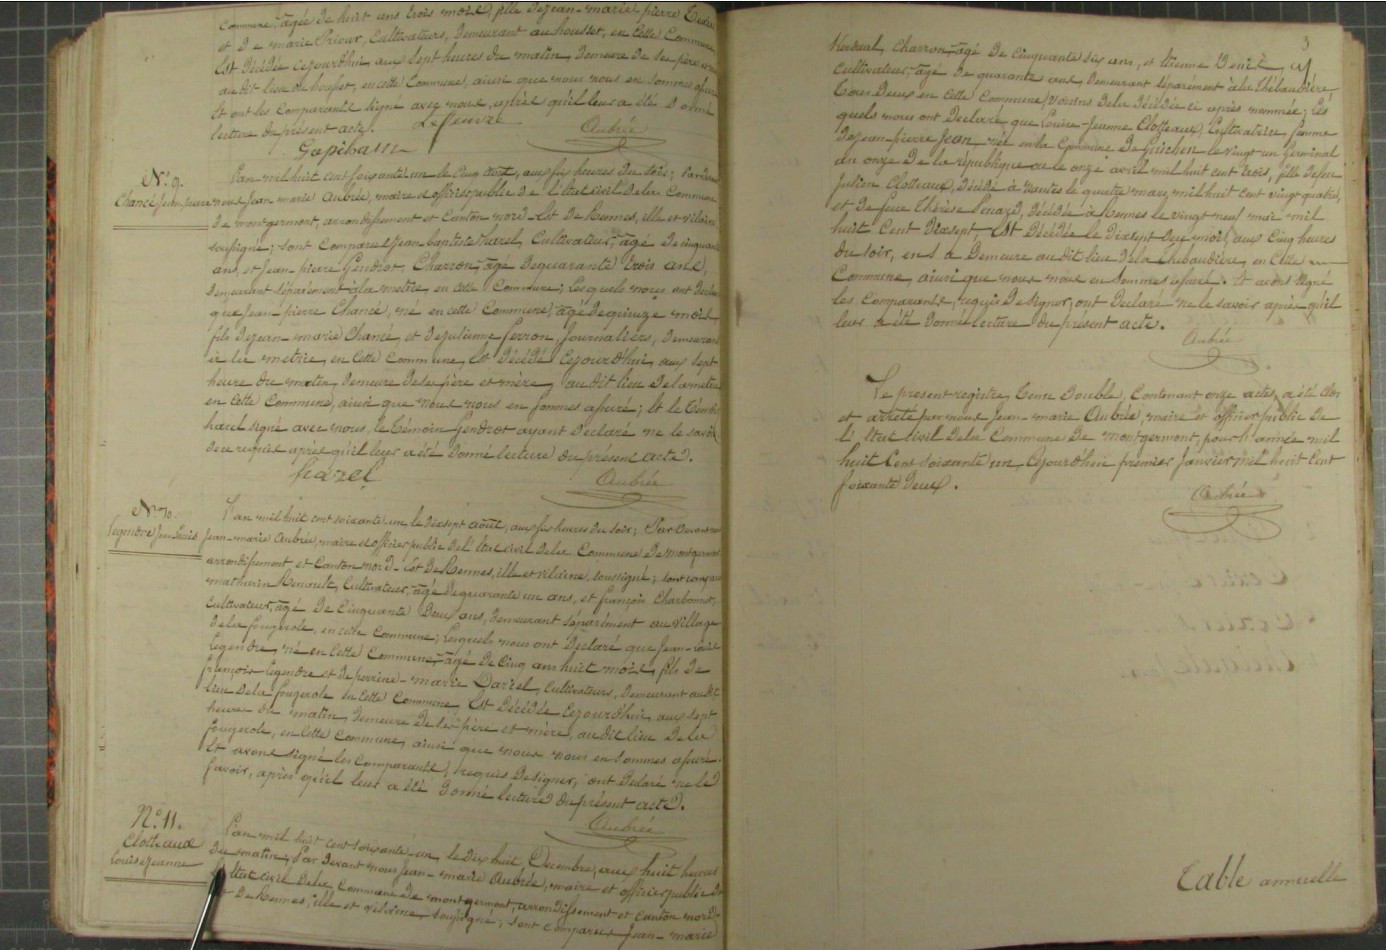 Commune, âgée de huit ans trois mois, fille de Jean-marie pierre
et de marie Prieur, Cultivateurs, Demeurant au housset, en cette Commune,
Est Décédée cejourd'hui, aux sept heures du matin, Demeure de ses père et
au dit lieu du housset, en cette Commune, ainsi que nous nous en sommes assuré
Et ont les Comparants signé avec nous, après qu'il leur a été donné
lecture du présent acte. Lefeuvre Aubrée
N°. 9.
Chancé jean pierre
L'an mil huit cent soixante un le Cinq août, aux six heures du soir; Par devant
nous Jean marie Aubrée, maire et officier public de l'état civil de la Commune
de montgermont, arrondissement et Canton nord-Est de Rennes, ille et vilaine
soussigné; sont Comparus Jean baptiste harel, Cultivateur, âgé de cinquante
ans, et Jean-pierre Gendrot, Charron, âgé de quarante trois ans,
demeurant séparément à la metrie, en cette Commune; Lesquels nous ont Déclaré
que Jean-pierre Chancé, né en cette Commune, âgé de quinze mois
fils de Jean-marie Chancé, et de julienne ferron, Journaliers, Demeurant
à la metrie, en cette Commune, Est Décédé Cejourd'hui, aux sept
heure du matin, Demeure de ses père et mère, au dit lieu de la metrie
en cette Commune, ainsi que nous nous en sommes assuré; Et le Témoin
harel signé avec nous, le Témoin Gendrot ayant Déclaré ne le savoir
de ce requis après qu'il leur a été Donné lecture du présent acte.
harel Aubrée
N° 10.
Legendre Jean Louis
L'an mil huit cent soixante un le dixsept août, aux six heures du soir; Par devant nous
Jean-marie Aubrée, maire et officier public de l'état civil de la Commune de montgermont
arrondissement et Canton nord-Est de Rennes, ille et vilaine, soussigné; sont comparus
mathurin Renault, Cultivateur, âgé de quarante un ans, et françois Charbonnel,
Cultivateur, âgé De Cinquante Deux ans, Demeurant séparément au village
De la fougerole, en cette Commune; Lesquels nous ont Déclaré que Jean-Louis
Legendre, né en cette Commune, âgé de Cinq ans huit mois, fils de
françois Legendre et de perrine-marie Dariel, Cultivateurs, Demeurant au dit
lieu De la fougerole en cette Commune, Est Décédée Cejourd'hui, aux sept
heure du matin, Demeure De ses père et mère, au dit lieu De la
fougerole, en cette Commune, ainsi que nous nous en sommes assuré.
Et avons signé les Comparants, requis De signer, ont Déclaré ne le
savoir, après qu'il leur a été Donné lecture du présent acte.
Aubrée
N°. 11.
Clotteaux
Louise Jeanne
L'an mil huit cent soixante un, le Dix huit Décembre, aux huit heures
Du matin; Par Devant nous Jean-marie Aubrée, maire et officier public de
l'état civil De la Commune De montgermont, arrondissement et Canton nord-
Est de Rennes, ille et vilaine, soussigné; sont comparus Jean-marie
3
Charron, âgé De Cinquante six ans, et Etienne
Cultivateur, âgé de quarante ans, Demeurant séparément à la Thébaudière
Tous Deux en cette Commune, voisins De la Décédée ci après nommée; Les
quels nous ont Déclaré que Louise-Jeanne Clotteaux, Cultivatrice, femme
De Jean-pierre Jean, née en la Commune De Guichen le vingt un Germinal
du onze De la république ou le onze avril mil huit cent trois, fille De feu
Julien Clotteaux, Décédé à Nantes le quatre mars mil huit cent vingt quatre,
et De feue Thérèse Décédée à Rennes le vingt neuf mai mil
huit Cent Dixsept, Est Décédée le Dixsept Du mois, aux Cinq heures
Du soir, en sa Demeure au dit lieu De la Thébaudière, en cette
Commune, ainsi que nous nous en sommes assuré. Et avons signé
les Comparants, requis De signer, ont Déclaré ne le savoir après qu'il
leur a été Donné lecture du présent acte.
Aubrée
Le présent registre, Tenu Double, Contenant onze actes, a été Clos
et arrêté par nous Jean-marie Aubrée, maire et officier public De
l'état civil De la Commune De montgermont, pour l'année mil
huit Cent soixante un, Cejourd'hui premier Janvier mil huit Cent
soixante Deux.
Aubrée
Table annuelle